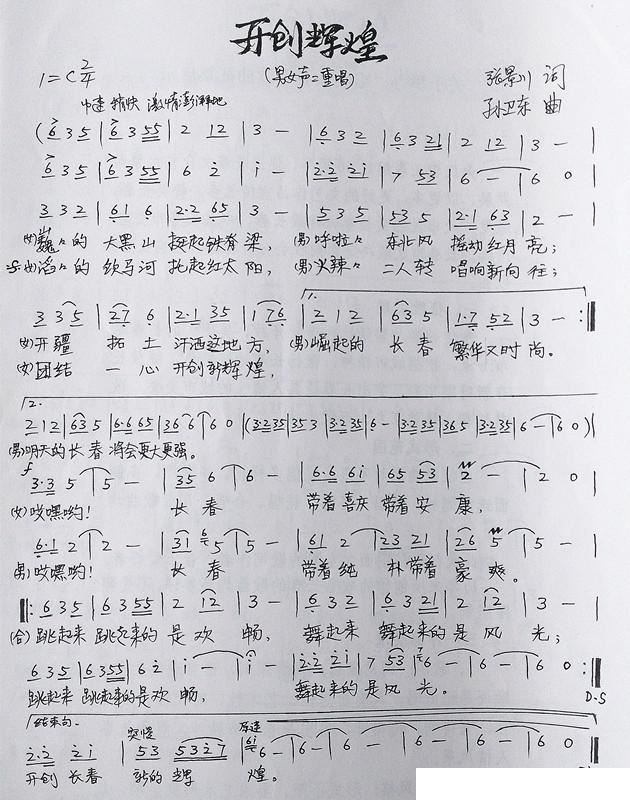 开创辉煌
1=C 2/4
(男女声二重唱)
张景川 词
中速 稍快 激情澎湃地
孙卫东 曲
(6 3 5 | 6 3 5 5 | 2 1 2 | 3 - | 6 3 2 | 6 3 2 1 | 2 1 2 | 3 - |
6 3 5 | 6 3 5 5 | 6 2 | i - | 2·2 2 i | 7 5 3 | 6 - | 6 0 |
3 3 2 | 6 1 6 | 2·2 6 5 | 3 - | 5 3 5 | 5 3 5 | 2·1 6 3 | 2 - |
(女)巍々的 大黑山 挺起铁脊梁, (男)呼啦々 东北风 摇动红月亮;
(女)滔々的 饮马河 托起红太阳, (男)火辣々 二人转 唱响新向往;
3 3 5 | 2 7 6 | 2·1 3 5 | 1 7 6 | 1. 2 1 2 | 6 3 5 | 1·7 5 2 | 3 - :||
(女)开疆 拓土 汗洒这地方, (男)崛起的 长春 繁华又时尚。
(女)团结 一心 开创新辉煌,
2.
2 1 2 | 6 3 5 | 6·6 6 5 | 3 6 6 | 6 0 | (3·2 3 5 | 3 5 3 | 3·2 3 5 | 6 - | 3·2 3 5 | 3 6 5 | 3·2 3 5 | 6 - | 6 0) |
(男)明天的长春 将会更大更强。
f
3·3 5 | 5 - | 3 5 6 | 6 - | 6·6 6 i | 6 5 5 3 | 2 - | 2 0 |
(女)哎嘿哟! 长春 带着喜庆 带着安康,
6·1 2 | 2 - | 3 1 5 | 5 - | 6 1 2 | 2 3 2 1 | 2 6 5 | 5 - |
(男)哎嘿哟! 长春 带着纯朴 带着豪爽。
||: 6 3 5 | 6 3 5 5 | 2 1 2 | 3 - | 6 3 2 | 6 3 2 1 | 2 1 2 | 3 - |
(合)跳起来 跳起来的 是欢畅, 舞起来 舞起来的 是风光;
6 3 5 | 6 3 5 5 | 6 2 | i - | i - | 2·2 2 i | 7 5 3 | 6 - | 6 - | 6 0 :||
跳起来 跳起来的是欢畅, 舞起来的是风光。
D·S
结束句. 突慢 原速
2·2 2 i | 5 3 5 3 2 7 | 6 - | 6 - | 6 - | 6 - | 6 - | 6 0 ||
开创长春 新的辉煌。